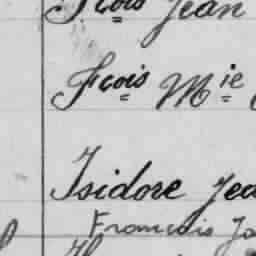 Fcois Jean
Fcois Mie
Isidore Jea
Francois Jo